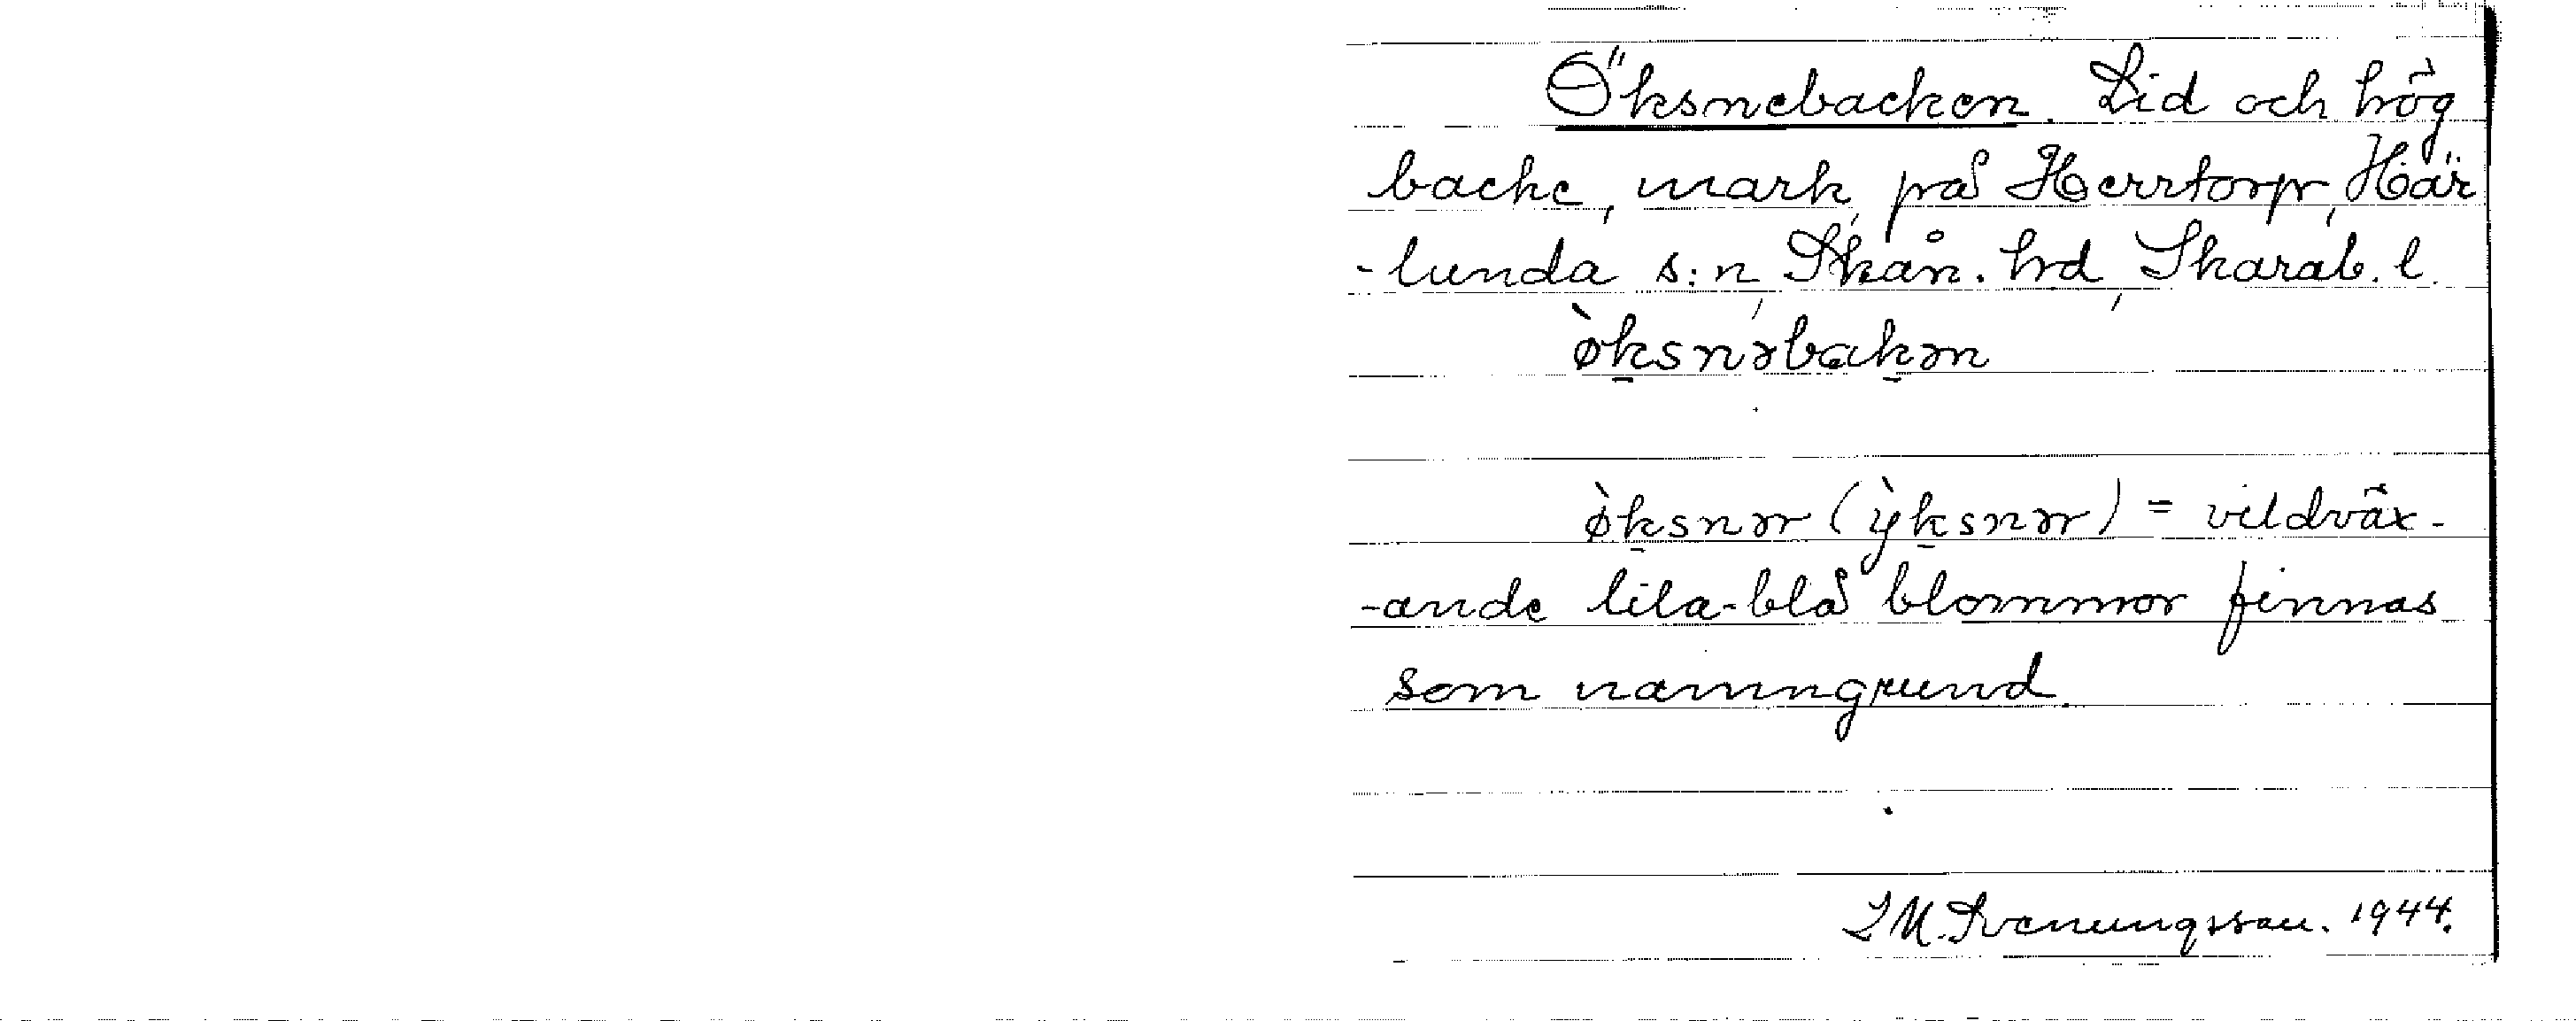 Öksnebacken. Lid och hög
backe, mark, på Herrtorp, Här
-lunda s:n, Skån. hd, Skarab. l.
ø̀k̠snəbak̠ən
ø̀k̠snər (ỳk̠snər) = vildväx-
-ande lila-blå blommor finnas
som namngrund.
I M. Svenungsson. 1944.